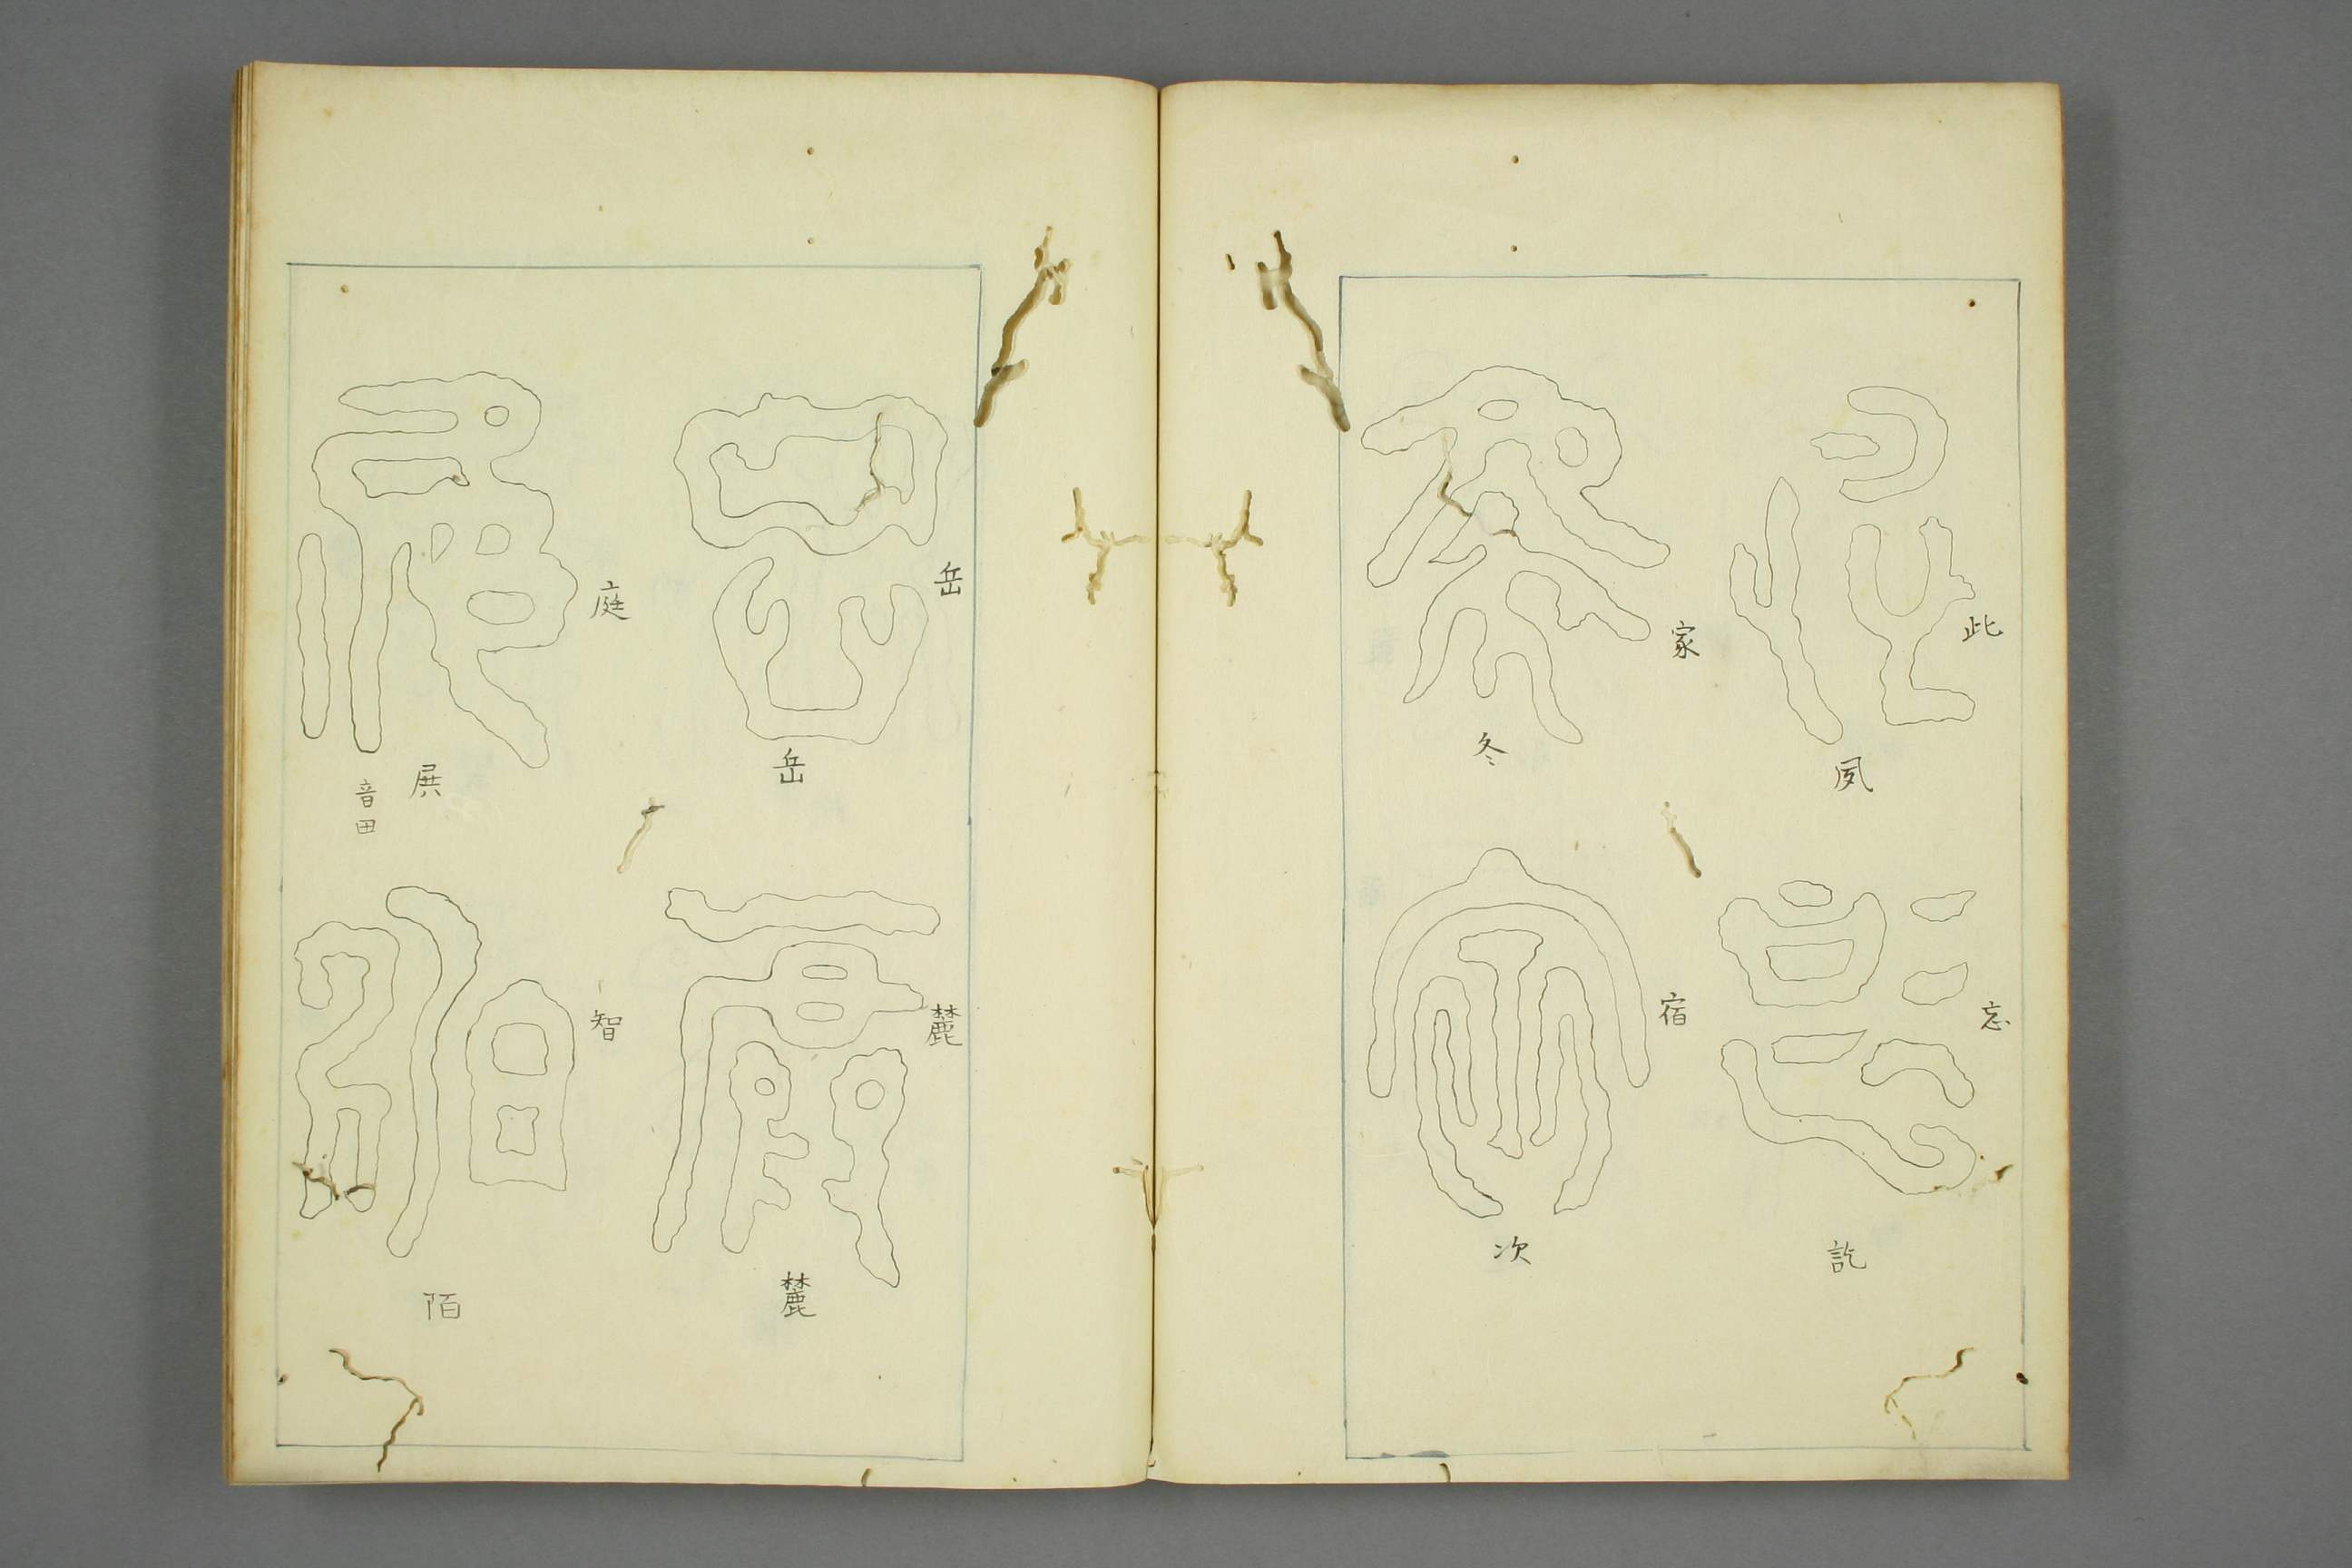 此
夙
忘
訖
家
冬
宿
次
岳
岳
麓
麓
庭
展
音田
智
陌